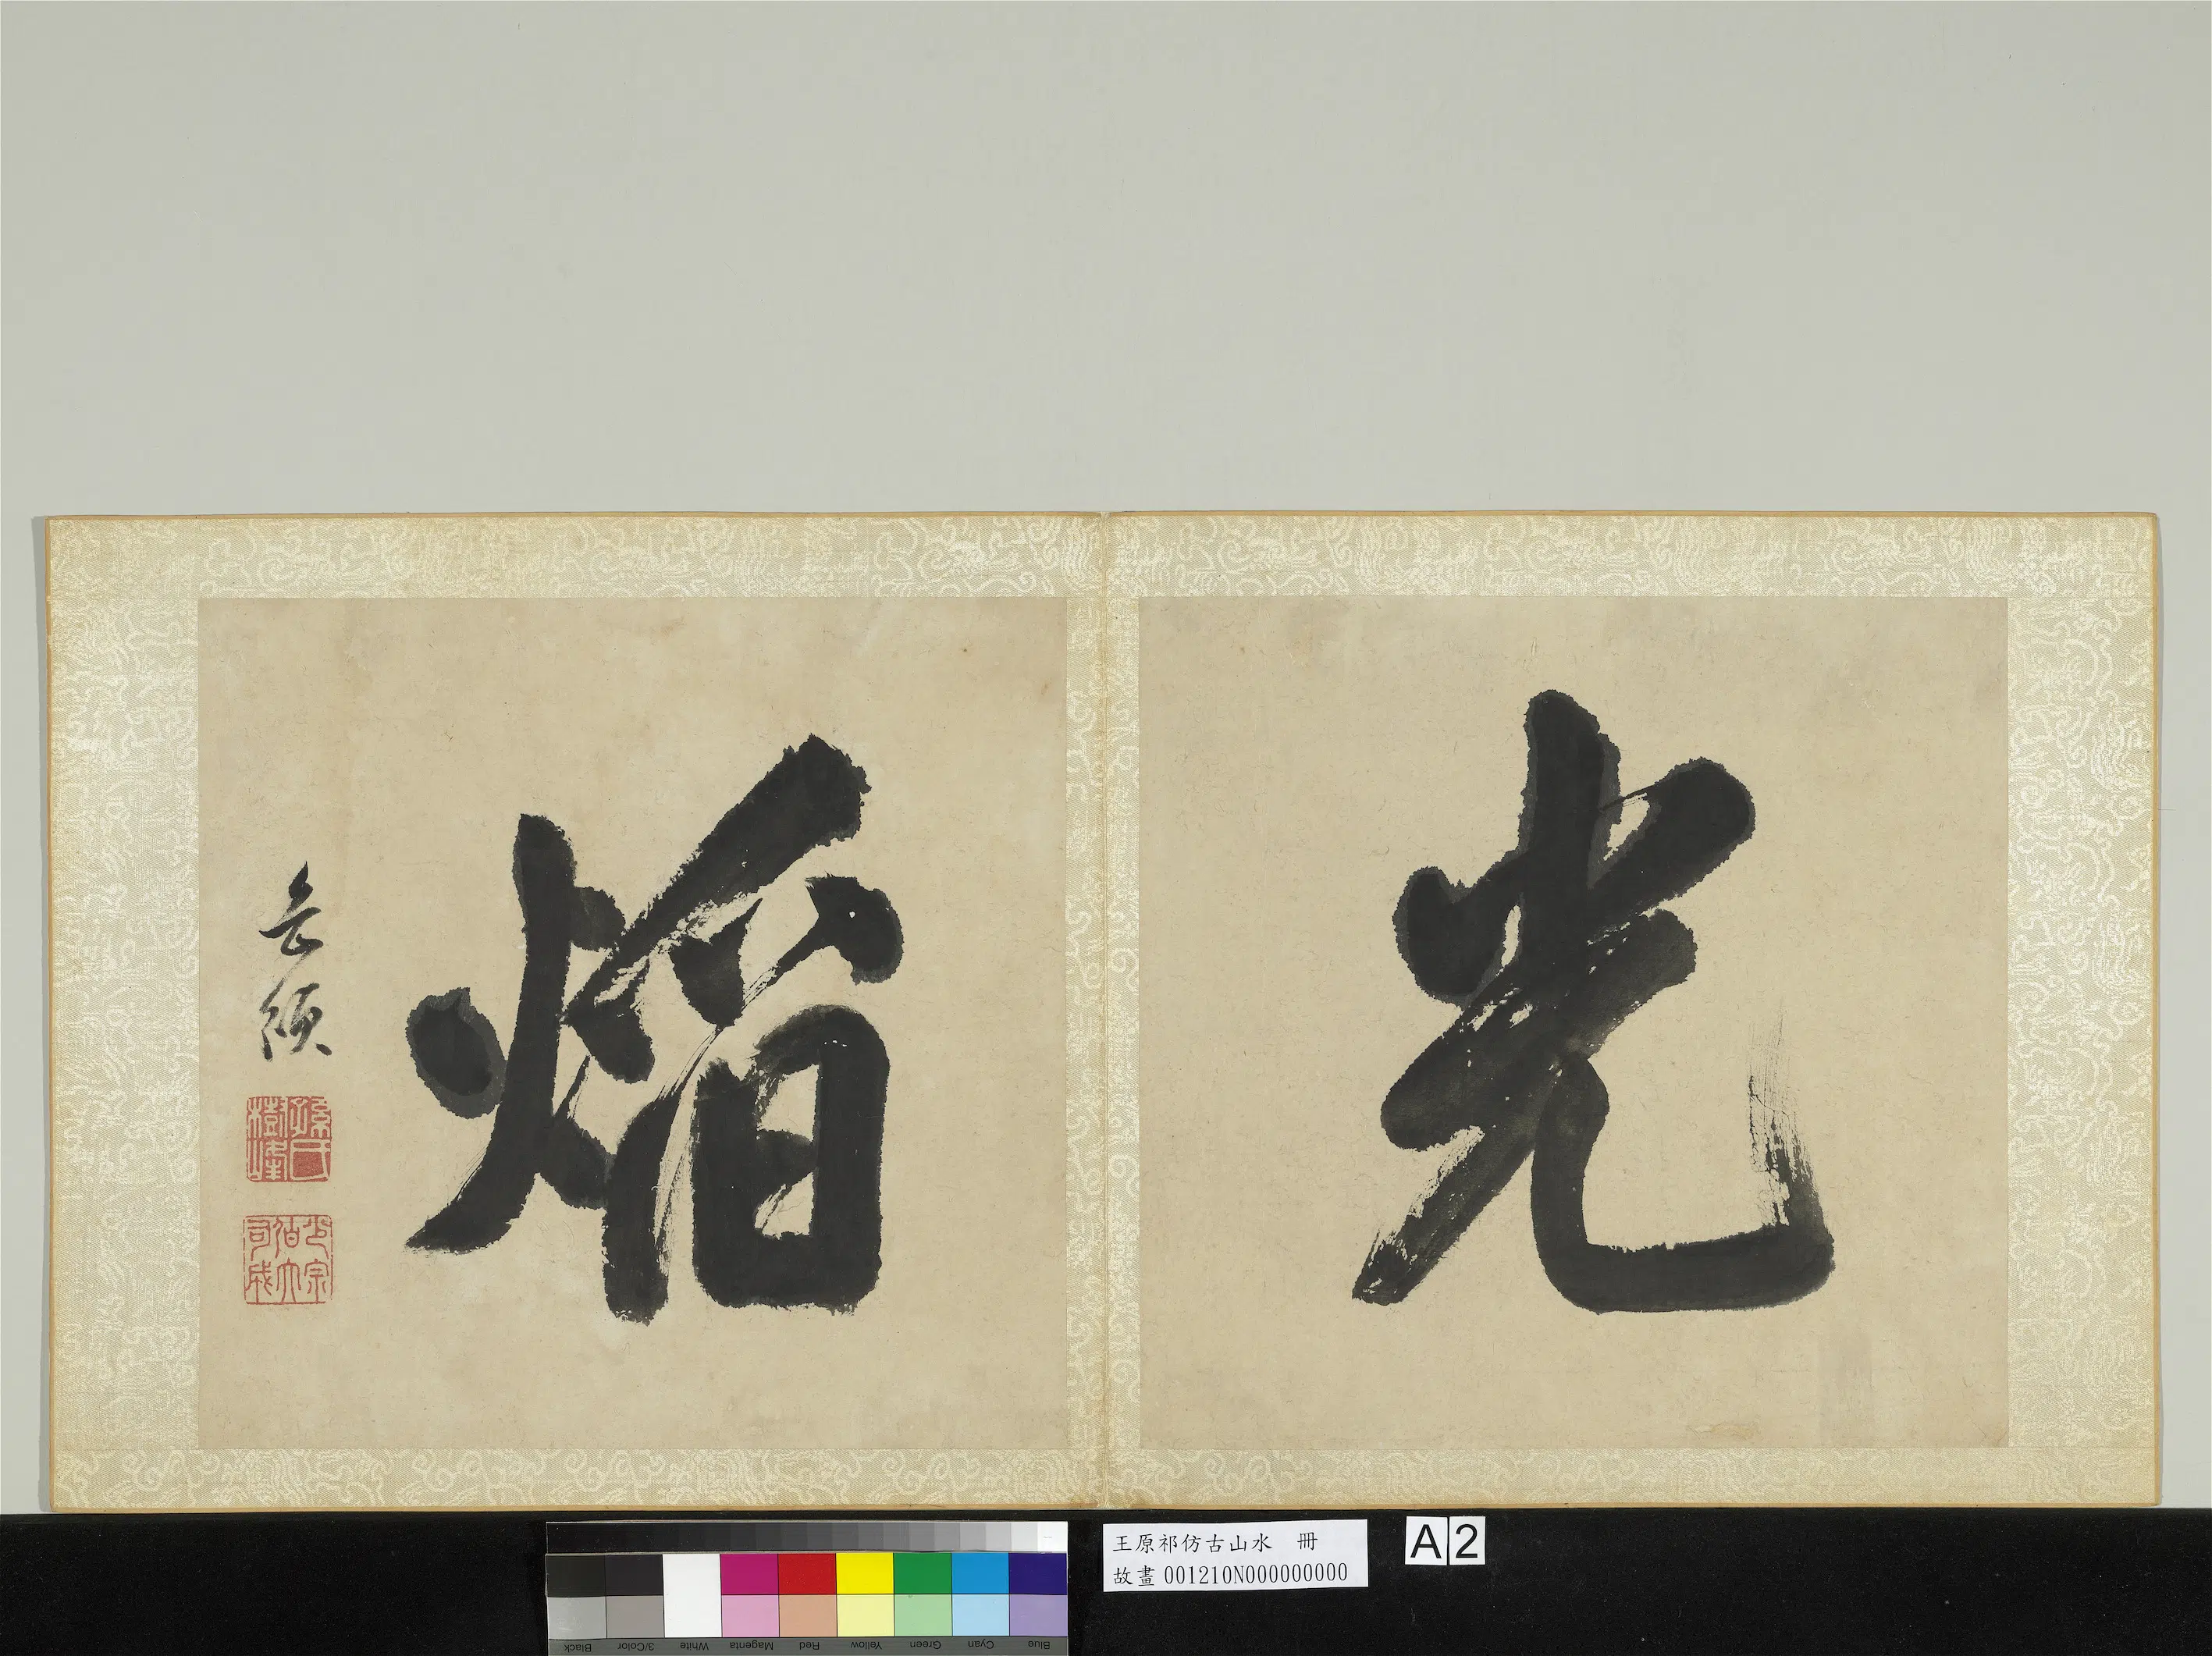 光
焰
岳頒
孫氏樹峰
少宗伯大司成
王原祁仿古山水 冊
故畫001210N000000000
A2
Blue Cyan Green Yellow Red Magenta White 3/Color Black